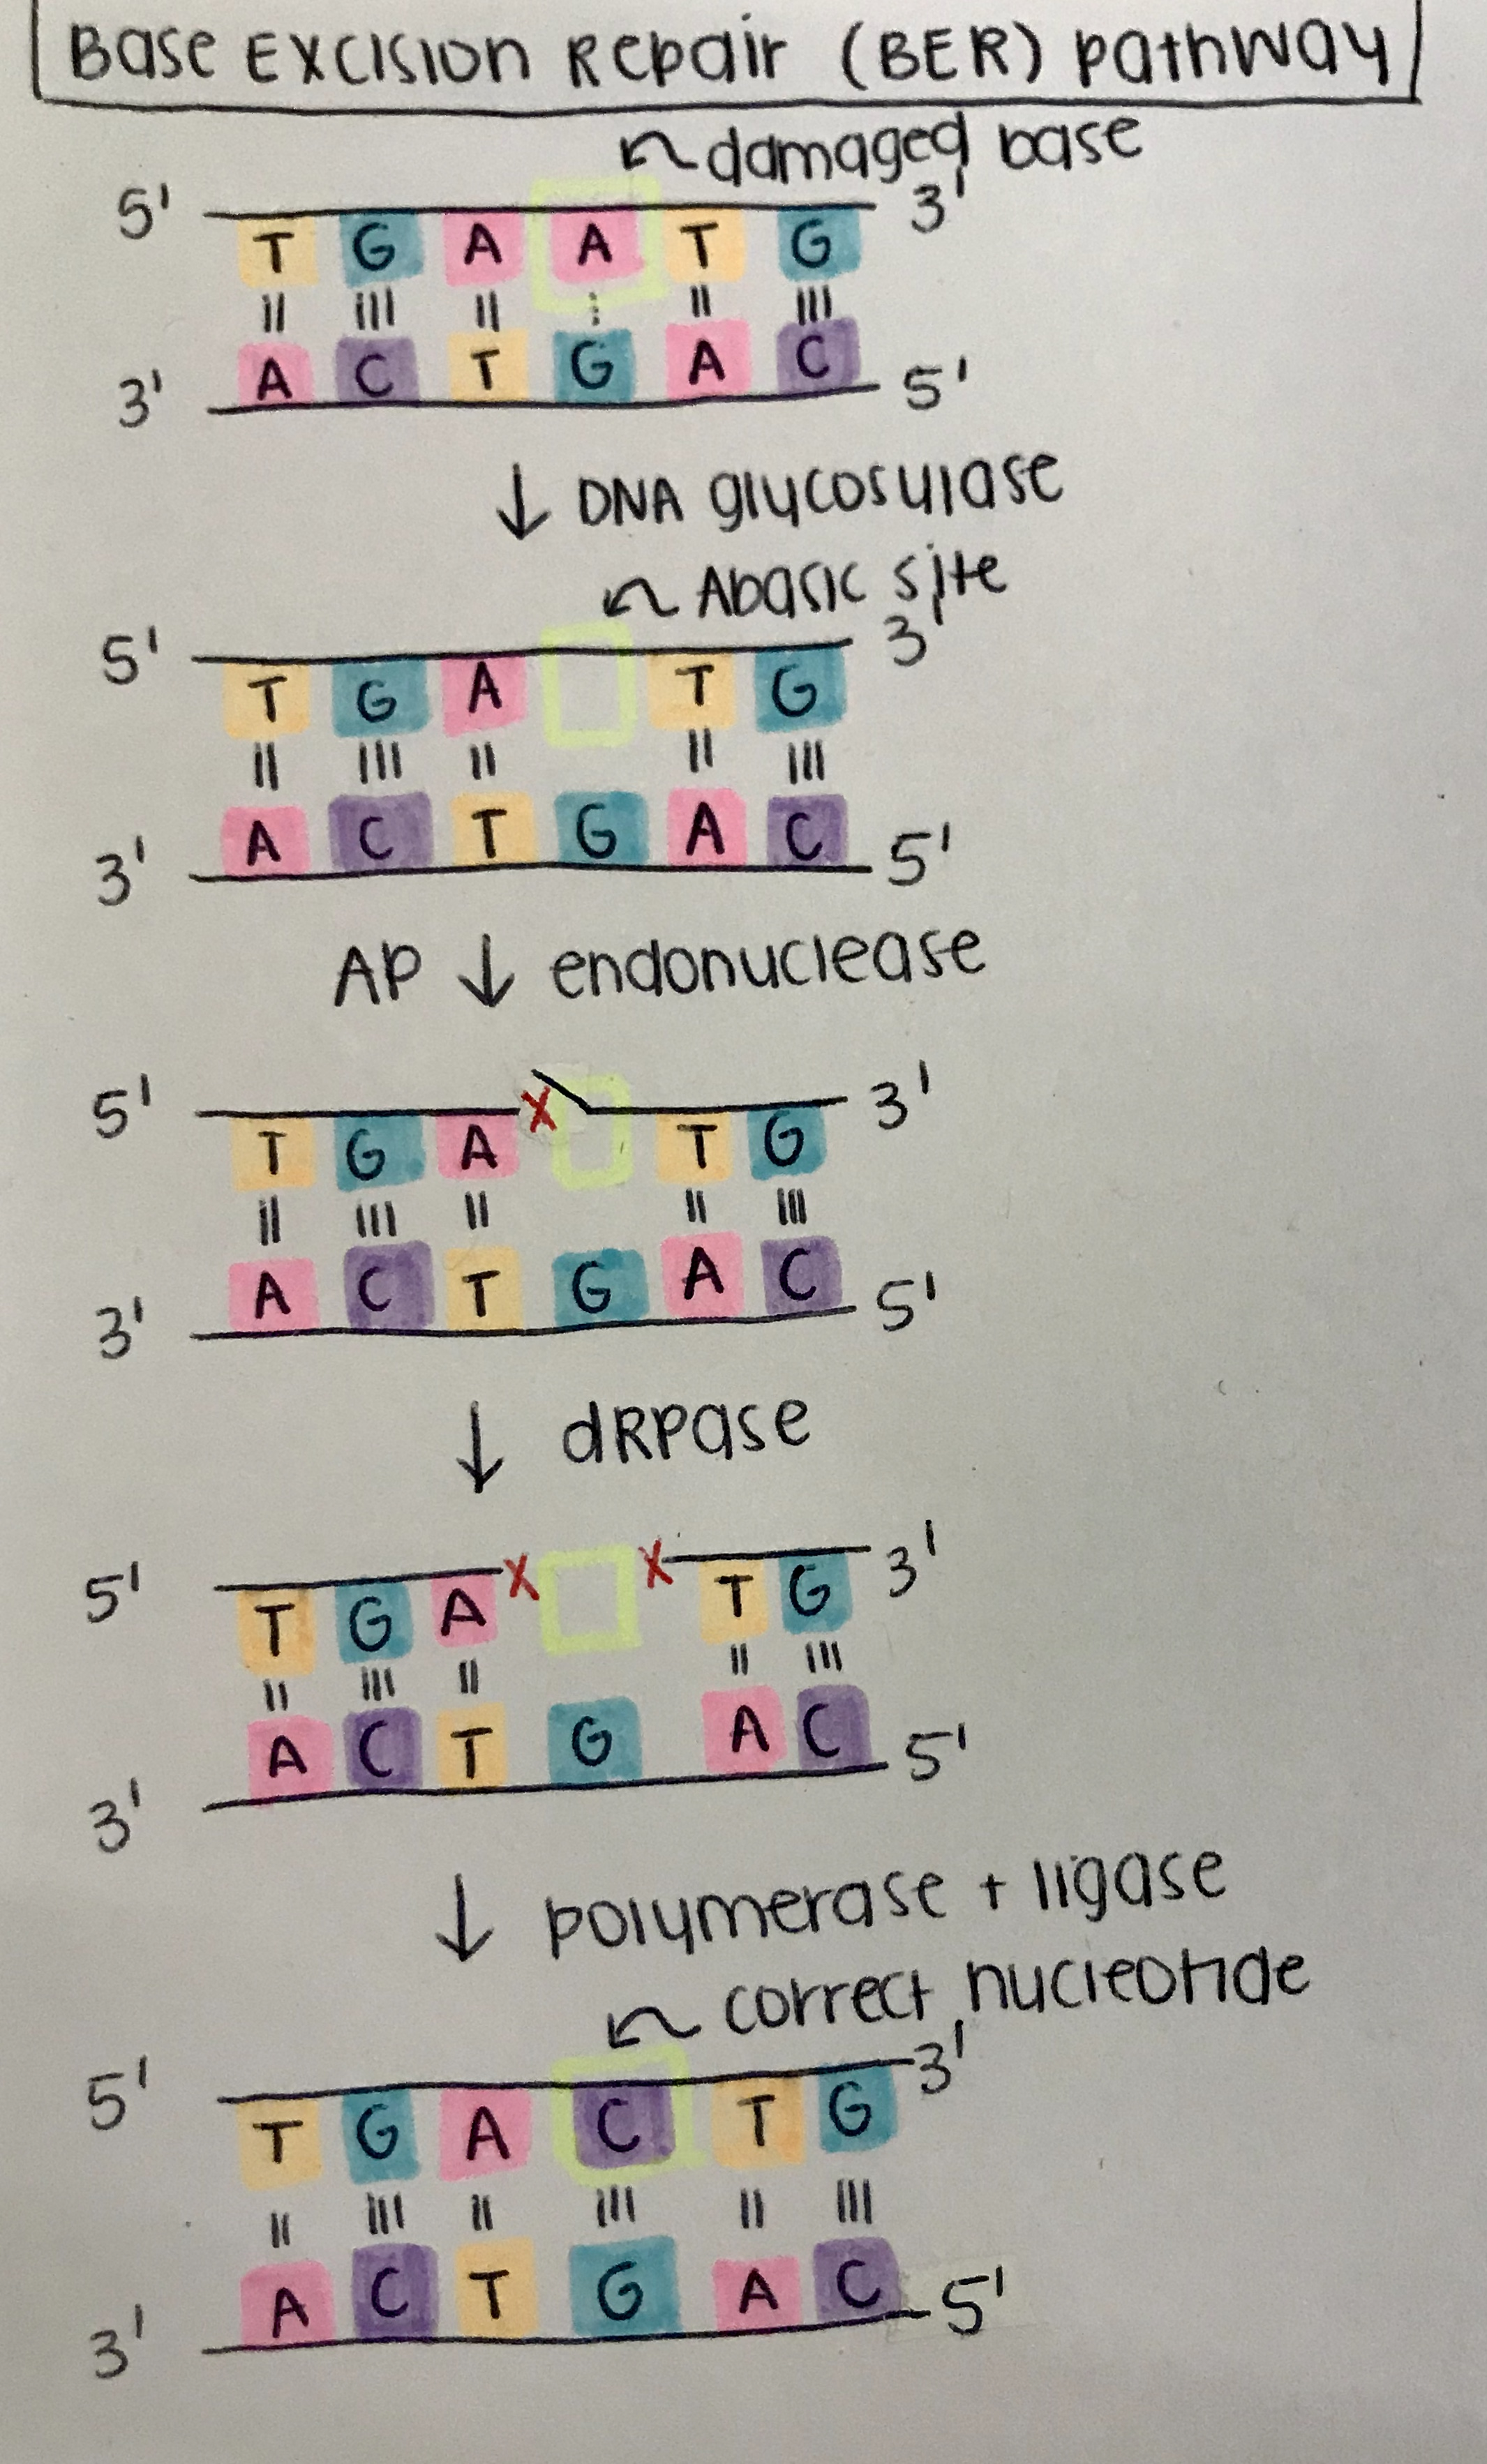 Base Excision Repair (BER) pathway
damaged base
5' T G A A T G 3'
3' A C T G A C 5'
DNA glycosylase
Abasic site
5' T G A T G 3'
3' A C T G A C 5'
AP endonuclease
5' T G A X T G 3'
3' A C T G A C 5'
dRPase
5' T G A X X T G 3'
3' A C T G A C 5'
polymerase + ligase
correct nucleotide
5' T G A C T G 3'
3' A C T G A C 5'